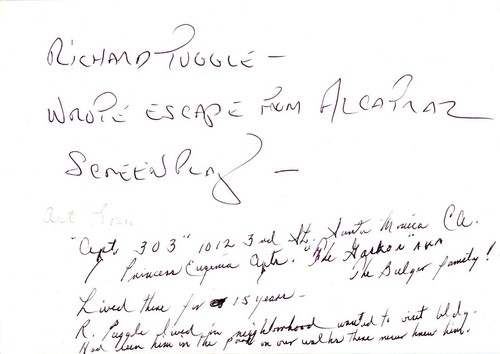 RICHARD TUGGLE —
WROTE ESCAPE FROM ALCATRAZ
SCREENPLAY —
"Apt, 303" 1012 3rd St, Santa Monica CA.
Princess Eugenia Apts. "The Gaskos" AKA
The Bulger family!
Lived there for 15 years —
R. Tuggle lived in neighborhood wanted to visit bldg.
Had seen him in the on our walks these never knew him.